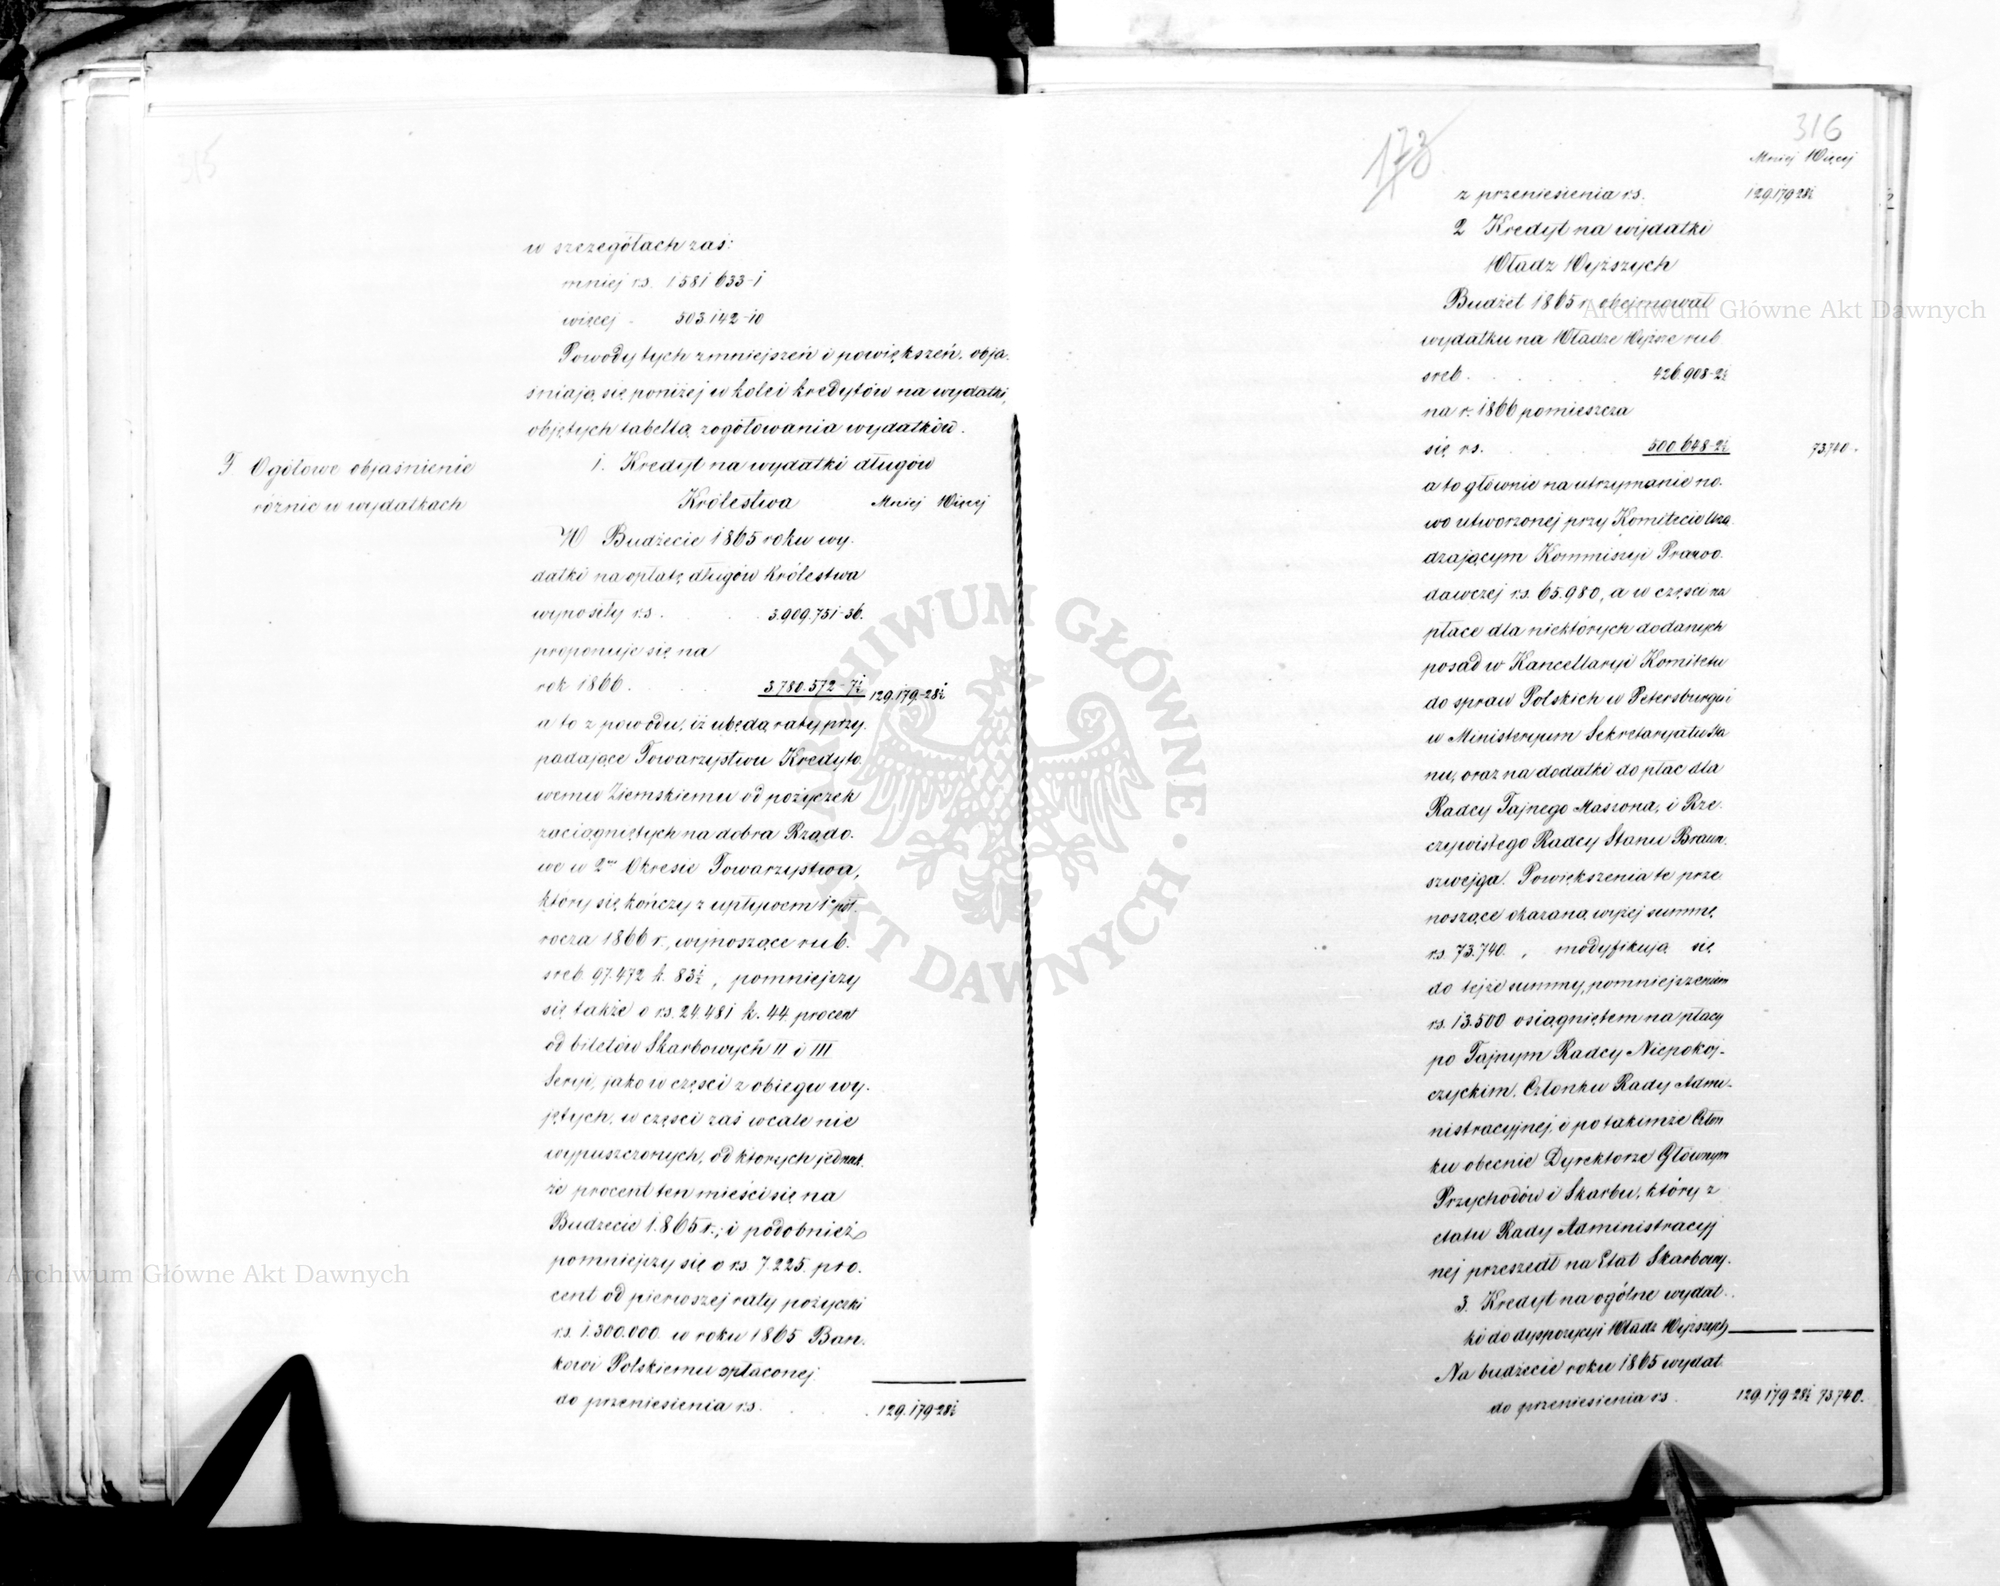 315
w szczegółach zaś:
mniej rs. 1 581 633-1
więcej - 503.142-10
Powody tych zmniejszeń i powiększeń, obja-
śniają się poniżej w kolei kredytów na wydatki,
objętych tabellą zogółowania wydatków.
Ogółowe objaśnienie
różnic w wydatkach
1. Kredyt na wydatki długów
Królestwa Mniej Więcej
W Budżecie 1865 roku wy-
datki na opłatę długów Królestwa
wynosiły rs. 3.909.751-36.
proponuje się na
rok 1866. 3.780.572-7½ 129.179-28½
a to z powodu, iż ubędą raty przy-
padające Towarzystwu Kredyto-
wemu Ziemskiemu od pożyczek
zaciągniętych na dobra Rządo-
we w 2m Okresie Towarzystwa,
który się kończy z upływem 1o pół-
rocza 1866 r., wynoszące rub.
sreb. 97.472 k. 83½, pomniejszy
się także o rs. 24.481 k. 44. procent
od biletów Skarbowych II i III
Seryi, jako w części z obiegu wy-
jętych, w części zaś wcale nie
wypuszczonych, od których jednak-
że procent ten mieści się na
Budżecie 1865 r.; i podobnież
pomniejszy się o rs. 7.225. pro-
cent od pierwszej raty pożyczki
rs. 1.300.000. w roku 1865 Ban-
kowi Polskiemu spłaconej
do przeniesienia rs. 129.179-28½
173
316
Mniej Więcej
z przeniesienia rs. 129.179-28½
2 Kredyt na wydatki
Władz Wyższych
Budżet 1865 r. obejmował
wydatku na Władze Wyższe rub.
sreb. 426.908-2½
na r. 1866 pomieszcza
się rs. 500.648-2½ 73.740.
a to głównie na utrzymanie no-
wo utworzonej przy Komitecie Urzą-
dzającym Kommissyi Prawo-
dawczej rs. 65.980, a w części na
płace dla niektórych dodanych
posad w Kancellaryi Komitetu
do spraw Polskich w Petersburgu i
w Ministeryum Sekretaryatu Sta-
nu, oraz na dodatki do płac dla
Radcy Tajnego Massona, i Rze-
czywistego Radcy Stanu Braun-
szwejga. Powiększenia te prze-
noszące okazaną wyżej summę
rs. 73.740., modyfikują się
do tejże summy, pomniejszeniem
rs. 13.500 osiągniętem na płacy
po Tajnym Radcy Niepokoj-
czyckim, Członku Rady Admi-
nistracyjnej, i po takimże Człon-
ku obecnie Dyrektorze Głównym
Przychodów i Skarbu, który z
etatu Rady Administracyj-
nej przeszedł na Etat Skarbowy.
3. Kredyt na ogólne wydat-
ki do dyspozycyi Władz Wyższych
Na budżecie roku 1865 wydat-
do przeniesienia rs. 129.179-28½ 73.740.
Archiwum Główne Akt Dawnych
Archiwum Główne Akt Dawnych
ARCHIWUM GŁÓWNE · AKT DAWNYCH ·